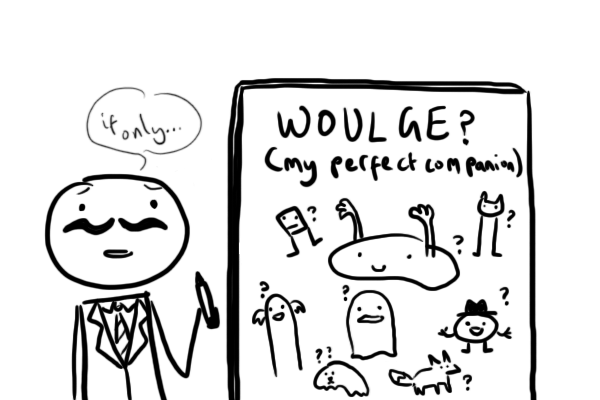 if only...
WOULGE?
(my perfect companion)
?
?
?
?
?
?
??
?